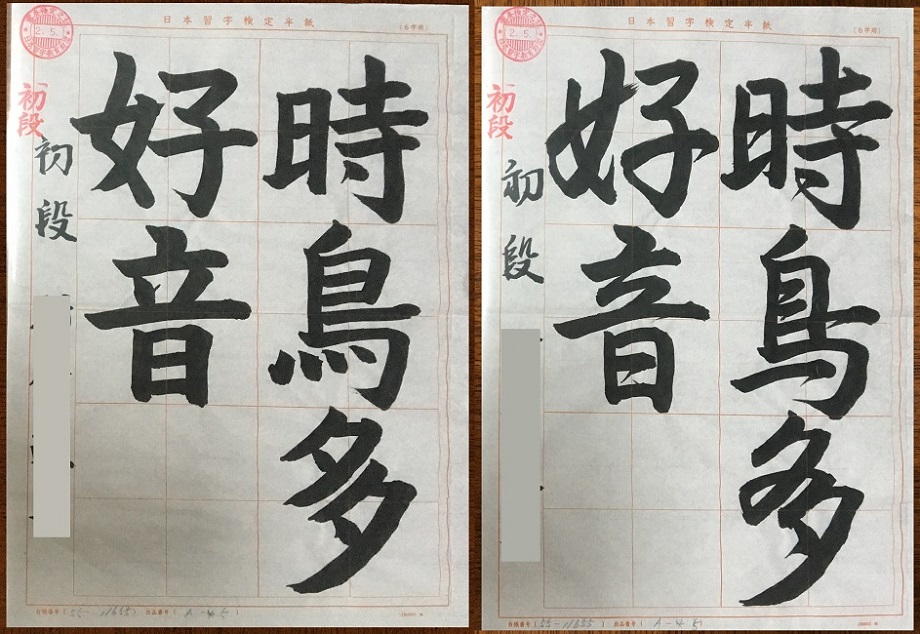 日本習字検定半紙
(6字用)
2.5.
初段
時鳥多
好音
初段
台帳番号(55-11655) 出品番号(A-45)
日本習字検定半紙
(6字用)
2.5.
初段
時鳥多
好音
初段
台帳番号(55-11655) 出品番号(A-45)